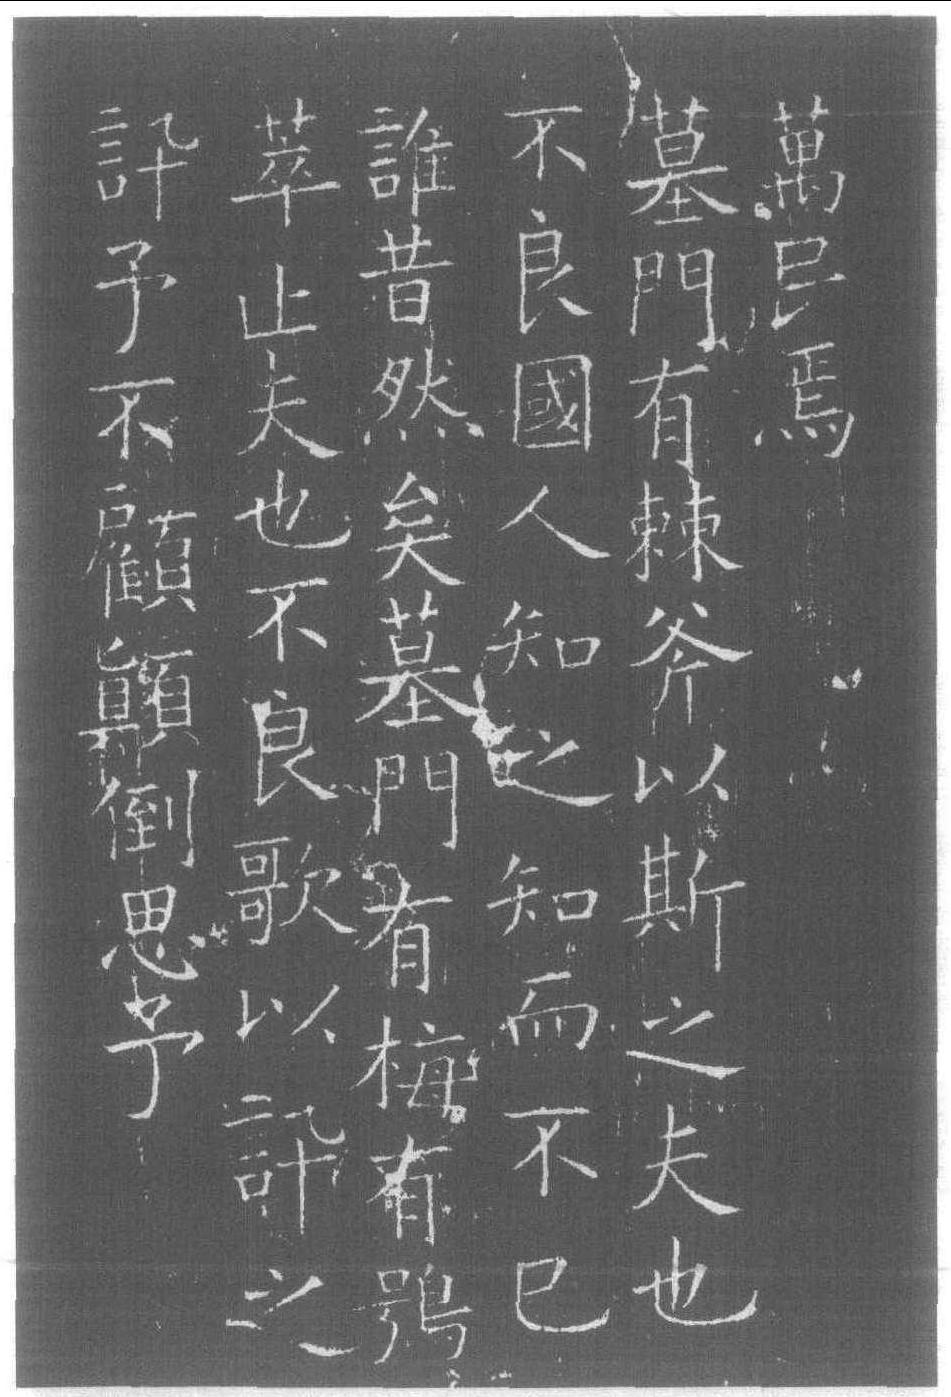 萬民焉
墓門有棘斧以斯之夫也
不良國人知之知而不已
誰昔然矣墓門有梅有鴞
萃止夫也不良歌以訊之
訊予不顧顛倒思予